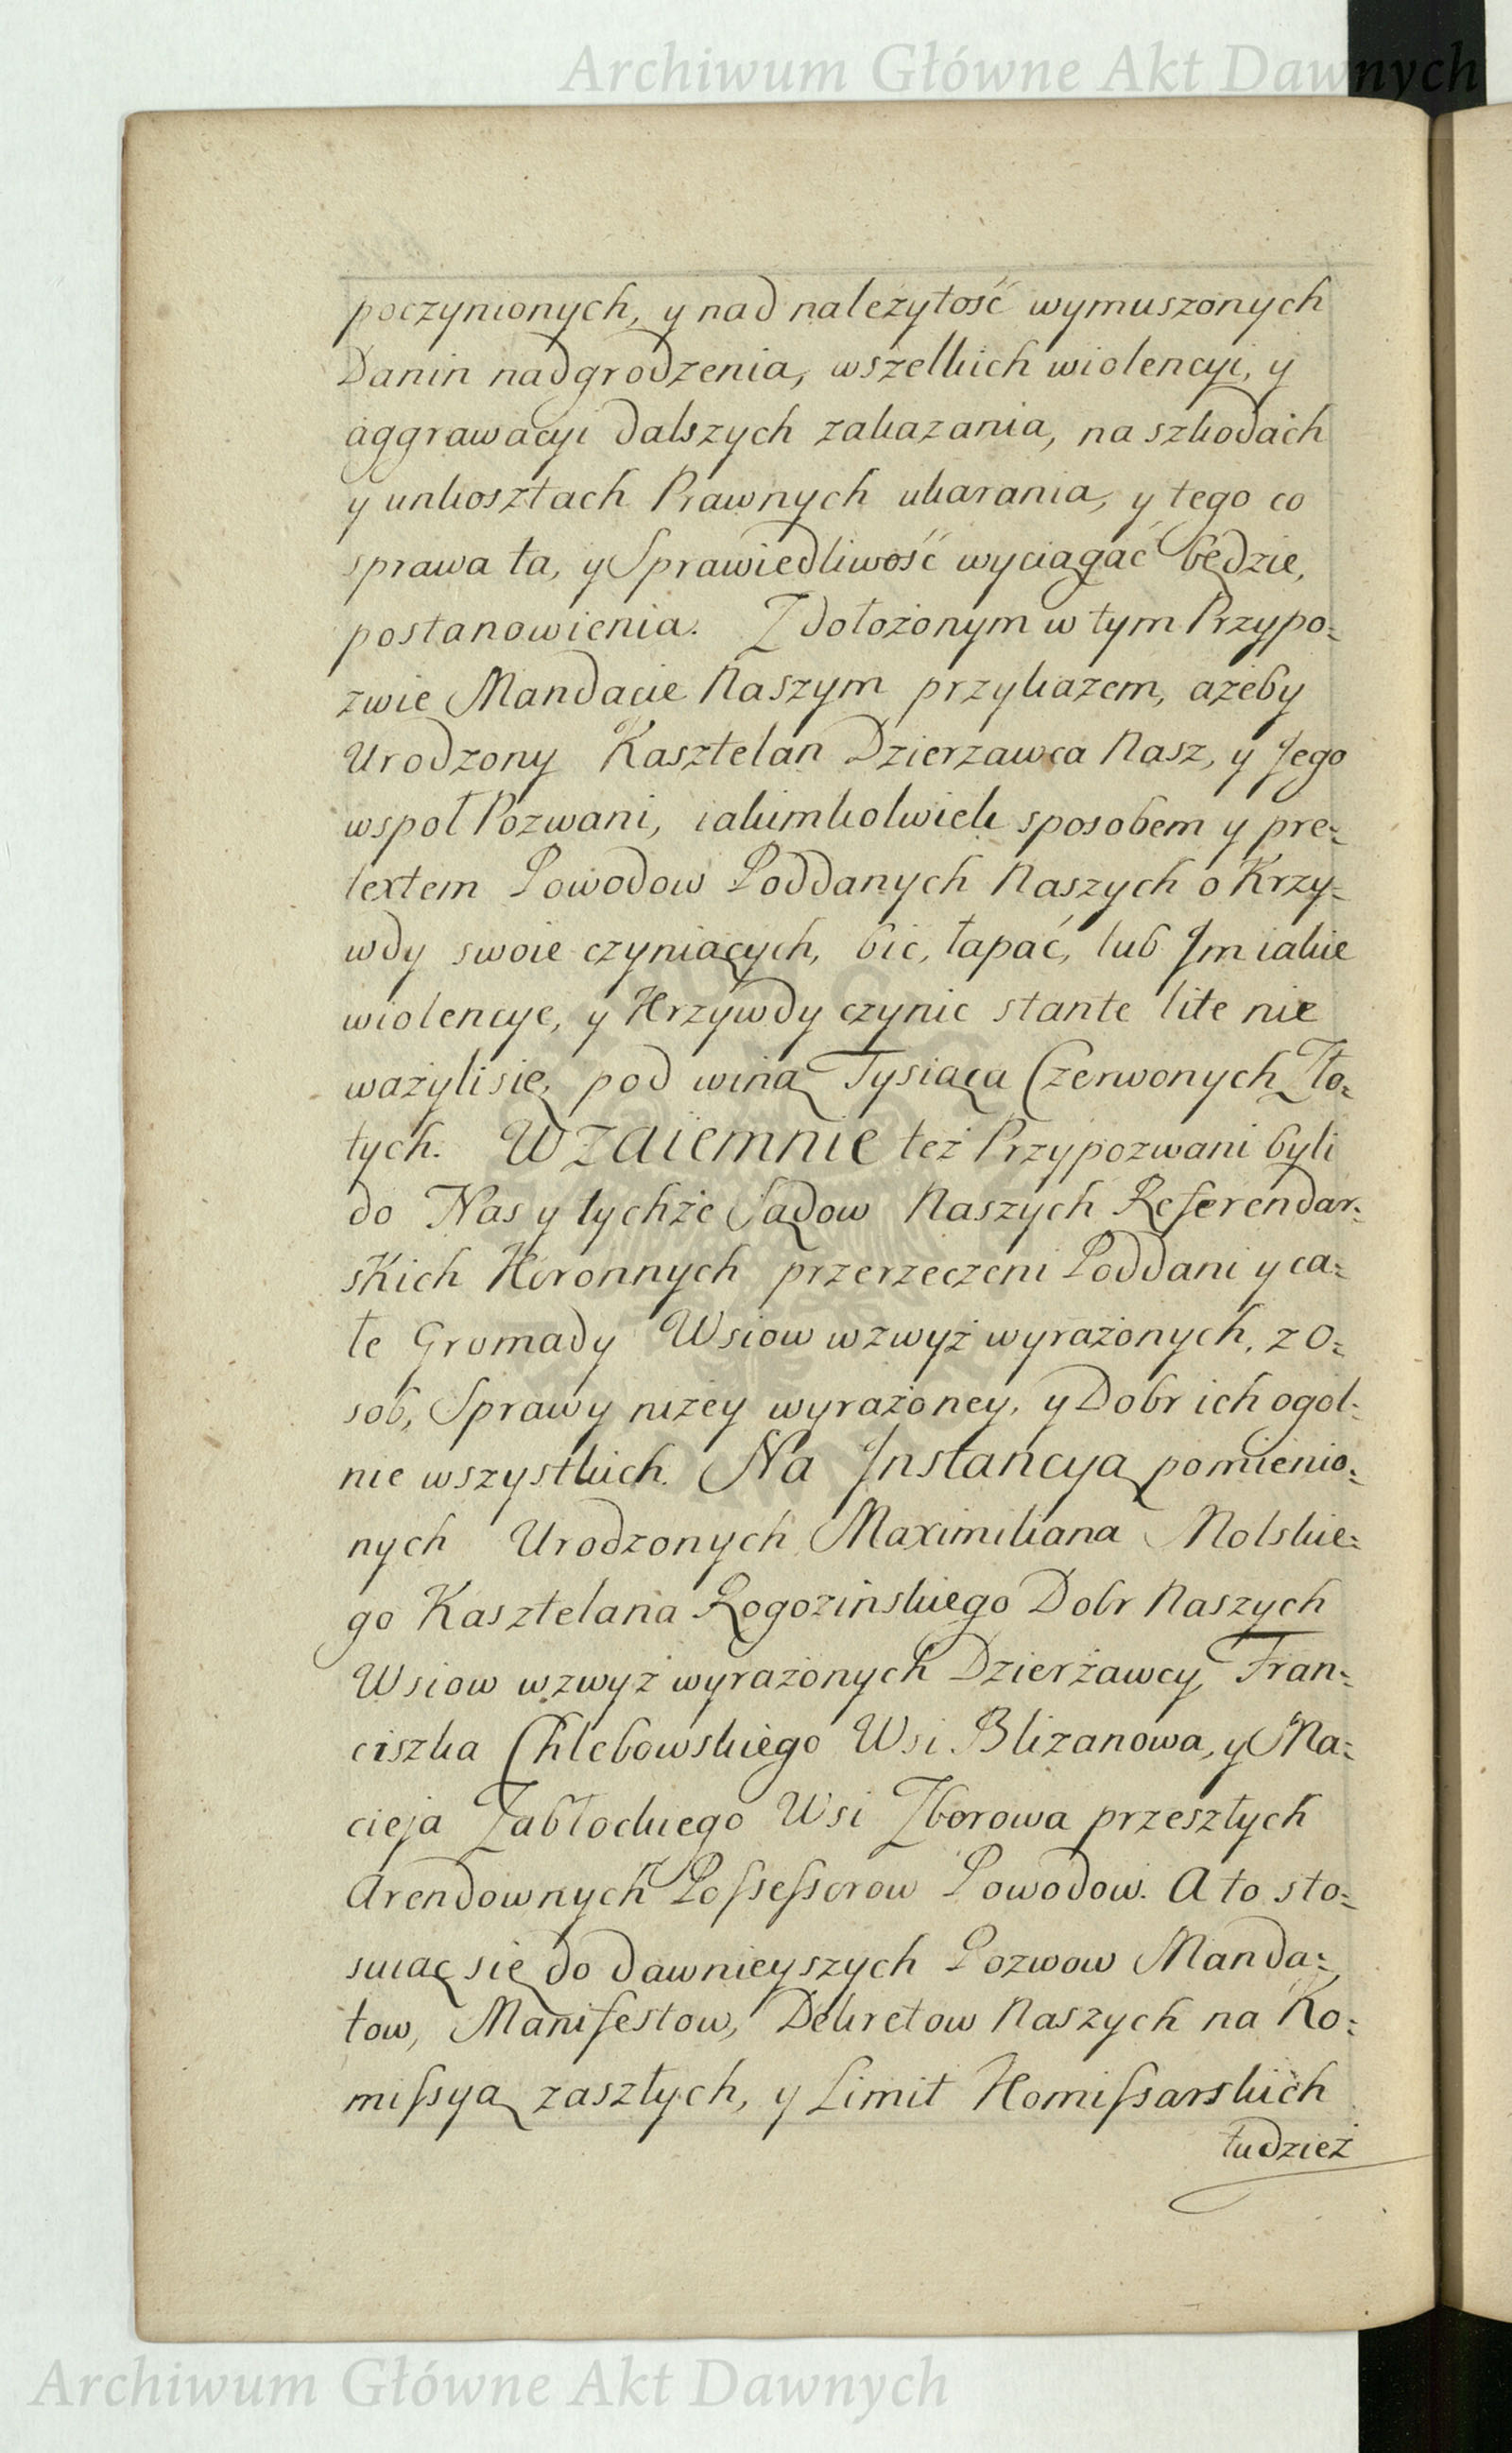 Archiwum Główne Akt Dawnych
poczynionych, y nad należytość wymuszonych
Danin nadgrodzenia, wszelkich wiolencyi, y
aggrawacyi dalszych zakazania, na szkodach
y unkosztach Prawnych ukarania, y tego co
sprawa ta, y Sprawiedliwość wyciągać będzie,
postanowienia. Z dołożonym w tym Przypo=
zwie Mandacie Naszym przykazem, ażeby
Urodzony Kasztelan Dzierzawca Nasz, y Jego
wspoł Pozwani, iakimkolwiek sposobem y pre=
textem Powodow Poddanych Naszych o Krzy=
wdy swoie czyniących, bić, łapać, lub Jm iakie
wiolencye, y Krzywdy czynic stante lite nie
ważyli się, pod winą Tysiąca Czerwonych Zło=
tych. Wzaiemnie też Przypozwani byli
do Nas y tychże Sądow Naszych Referendar=
skich Koronnych przerzeczeni Poddani y ca=
łe Gromady Wsiow wzwyż wyrażonych, z O=
sob, Sprawy niżey wyrażoney, y Dobr ich ogol=
nie wszystkich. Na Jnstancyą pomienio=
nych Urodzonych Maximiliana Molskie=
go Kasztelana Rogozinskiego Dobr Naszych
Wsiow wzwyż wyrażonych Dzierżawcy, Fran=
ciszka Chlebowskiego Wsi Blizanowa, y Ma=
cieja Zabłockiego Wsi Zborowa przeszłych
Arendownych Possessorow Powodow. A to sto=
suiąc się do dawnieyszych Pozwow Manda=
tow, Manifestow, Dekretow Naszych na Ko=
missyą zaszłych, y Limit Komissarskich
tudzież
Archiwum Główne Akt Dawnych